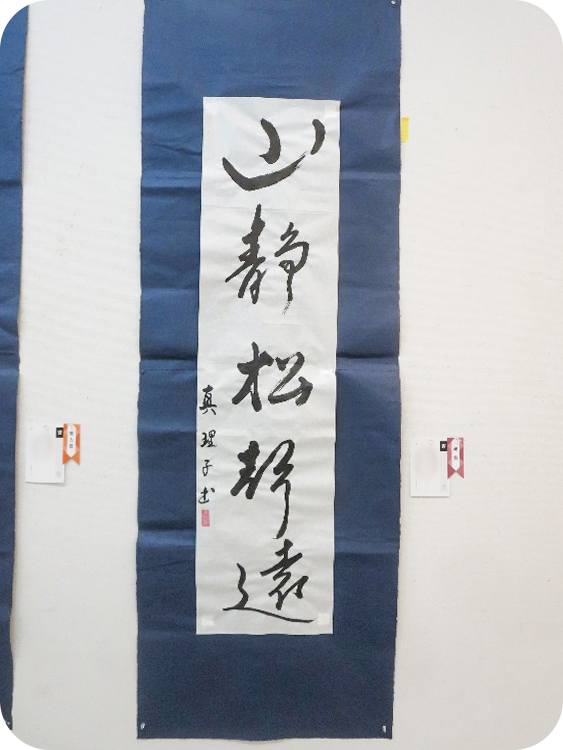 山静松聲遠
真理子書